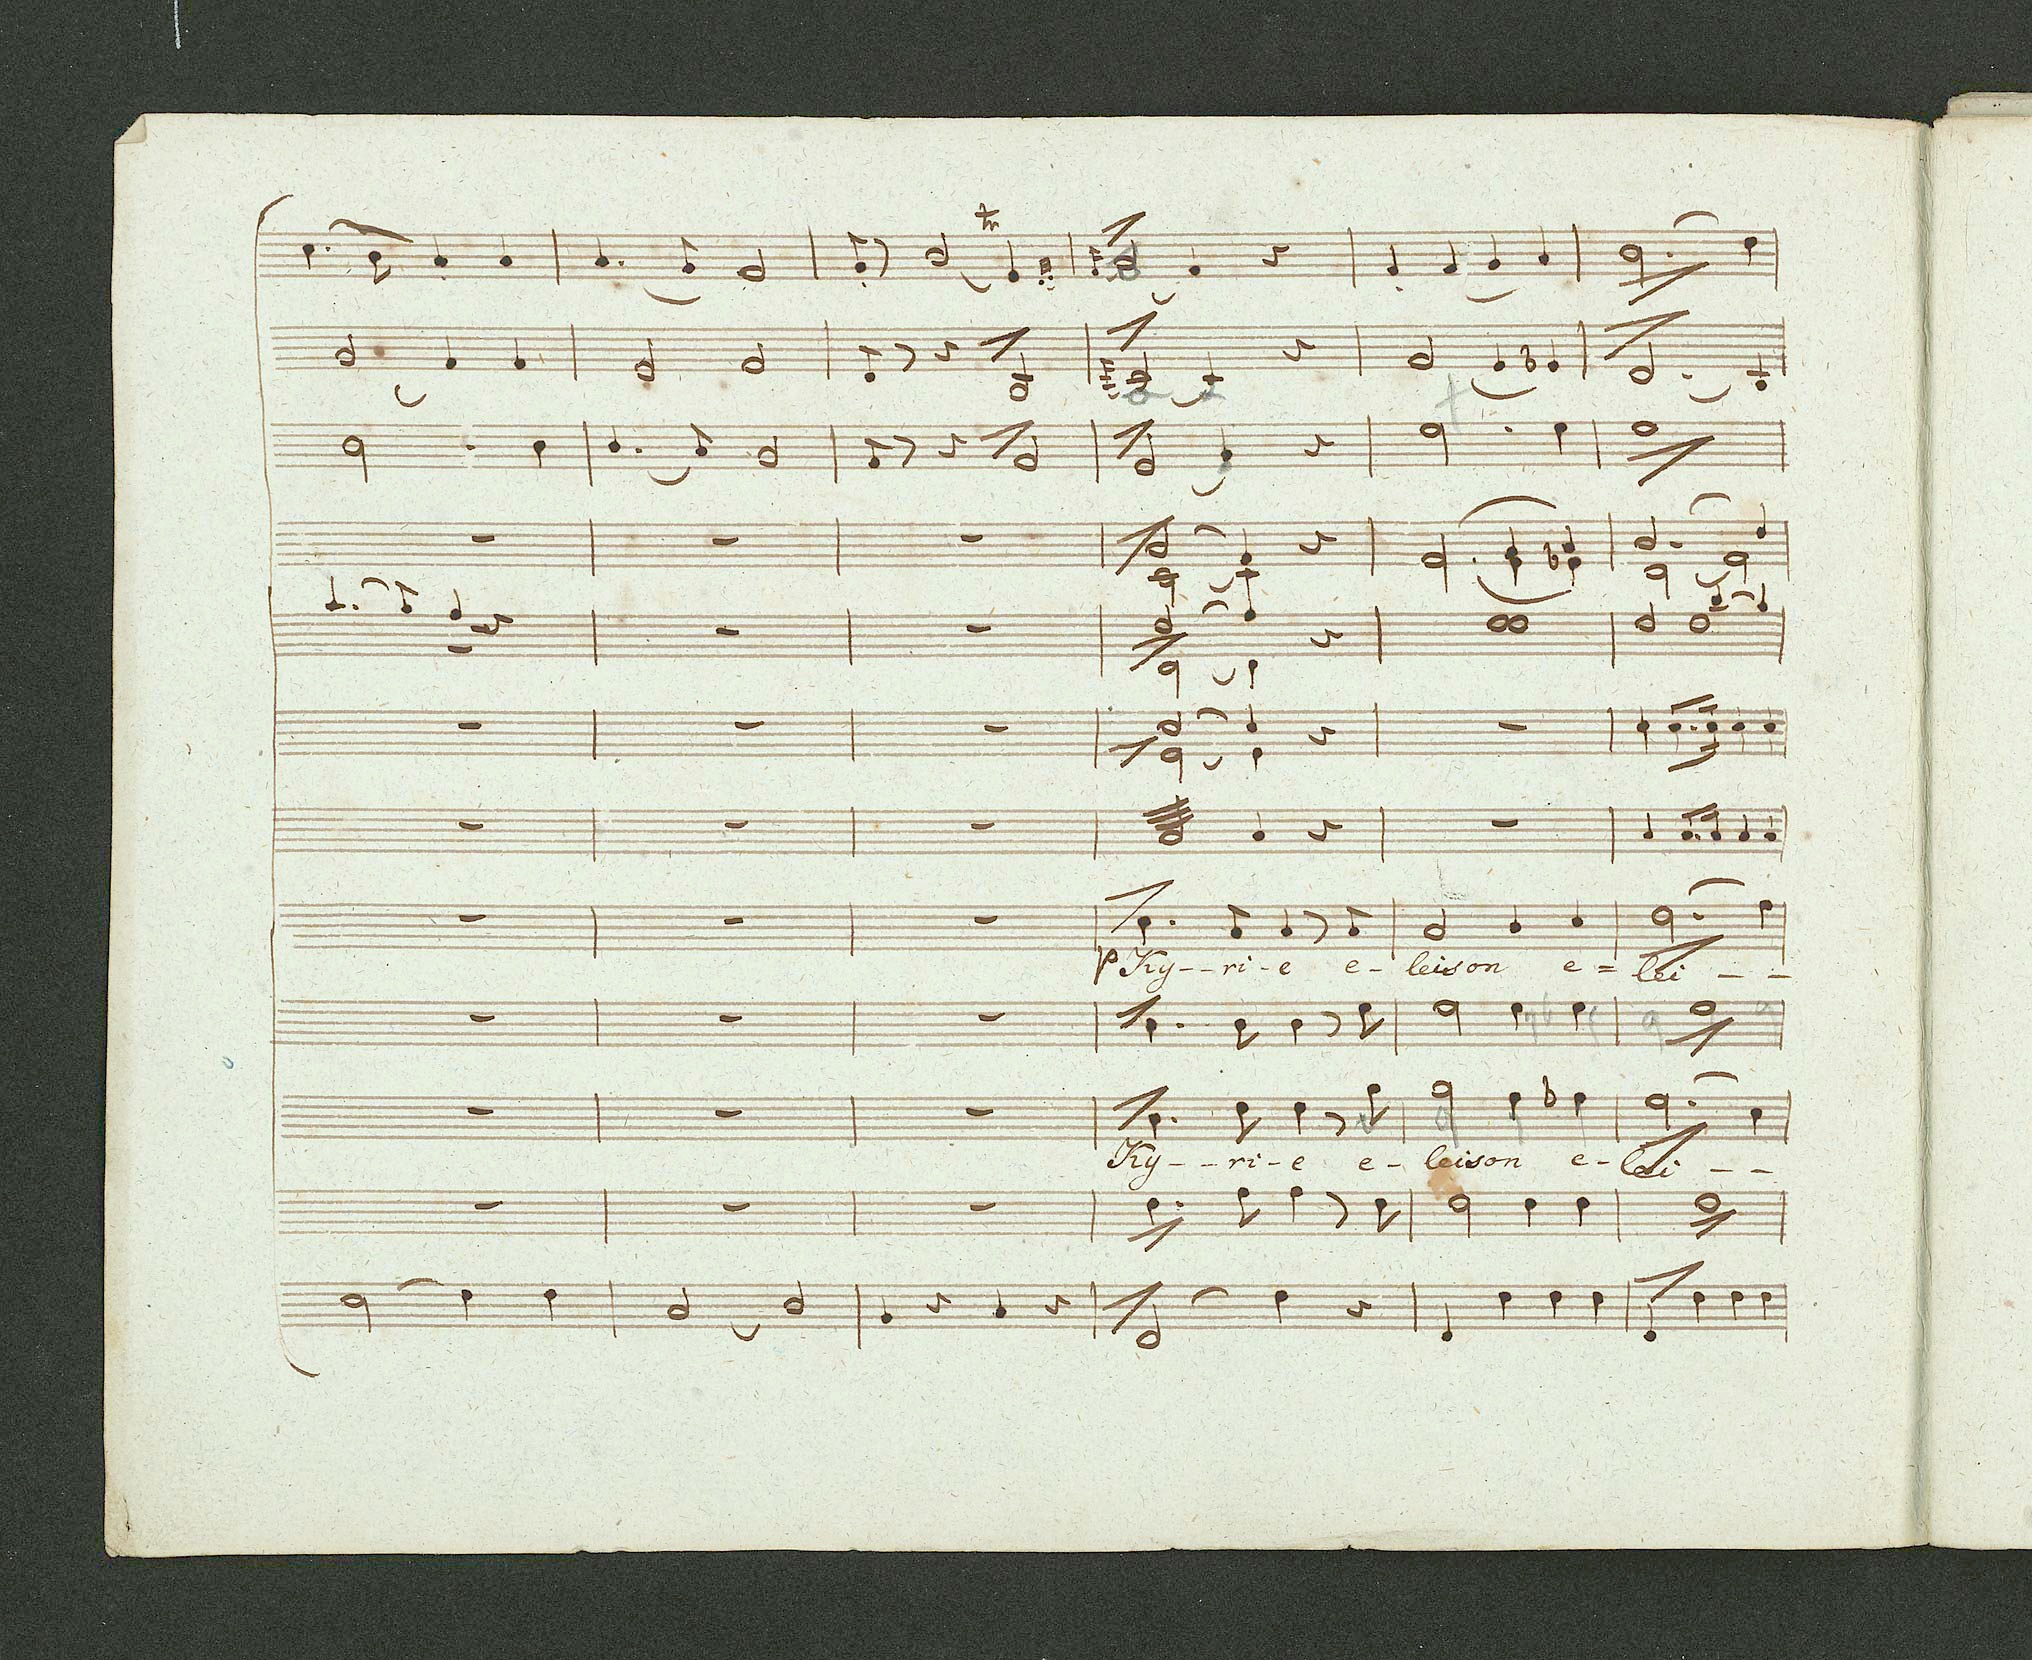 tr
p Ky - - ri - e e - leison e = lei - -
Ky - - ri - e e - leison e - lei - -